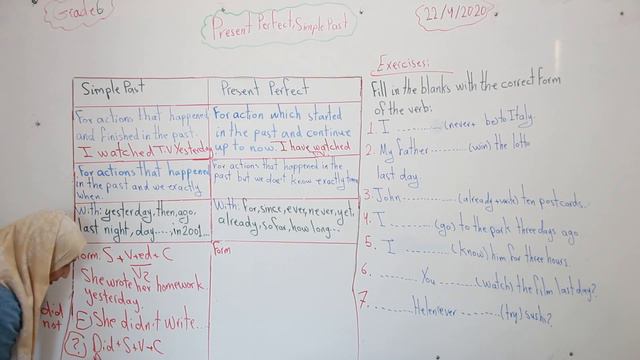 Grade 6
Present Perfect, Simple Past
22/4/2020
Simple Past
For actions that happened
and finished in the past.
I watched TV Yesterday
For actions that happened
in the past and we exactly
when.
With: yesterday, then, ago,
last night, day...., in 2001...
Form: S+V+ed+C
V2
She wrote her homework
yesterday.
She didn't write...
did
not
(?) Did+S+V+C
Present Perfect
For action which started
in the past and continue
up to now. I have watched
For actions that happened in the
past but we don't know exactly
With: for, since, ever, never, yet,
already, so far, how long...
Form
Exercises:
Fill in the blanks with the correct form
of the verb:
1. I ............ (never+ be) to Italy.
2. My father ......... (win) the lotto
last day.
3. John ......... (already+write) ten postcards.
4. I ......... (go) to the park three days ago
5. I ............ (know) him for three hours.
6. .......... You ......... (watch) the film last day?
7. ............ Helen ever ............ (try) sushi?